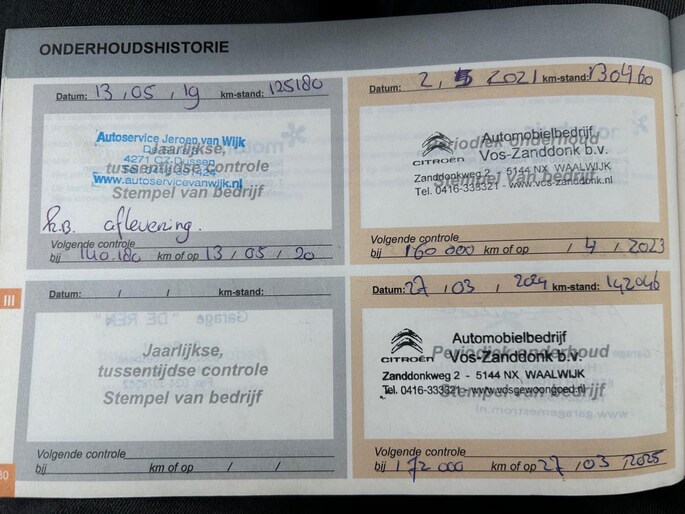 ONDERHOUDSHISTORIE
Datum: 13 / 05 / 19 km-stand: 125180
Autoservice Jeroen van Wijk
Jaarlijkse,
4271 CZ Dussen
tussentijdse controle
www.autoservicevanwijk.nl
Stempel van bedrijf
h.B. aflevering.
Volgende controle
bij 140.180 km of op 13 / 05 / 20
Datum: 2 / 5 / 2021 km-stand: 130460
Automobielbedrijf
Periodiek onderhoud
CITROËN Vos-Zanddonk b.v.
Zanddonkweg 2 - 5144 NX WAALWIJK
Stempel van bedrijf
Tel. 0416-333321 - www.vos-zanddonk.nl
Volgende controle
bij 160 000 km of op / 4 / 2023
III
Datum: / / km-stand:
Jaarlijkse,
tussentijdse controle
Stempel van bedrijf
Volgende controle
bij km of op / /
Datum: 27 / 03 / 2024 km-stand: 142046
Automobielbedrijf
Periodiek onderhoud
CITROËN Vos-Zanddonk b.v.
Zanddonkweg 2 - 5144 NX WAALWIJK
Tel. 0416-333321 - www.vosgewoongoed.nl
Stempel van bedrijf
Volgende controle
bij 172 000 km of op 27 / 03 / 2025
30